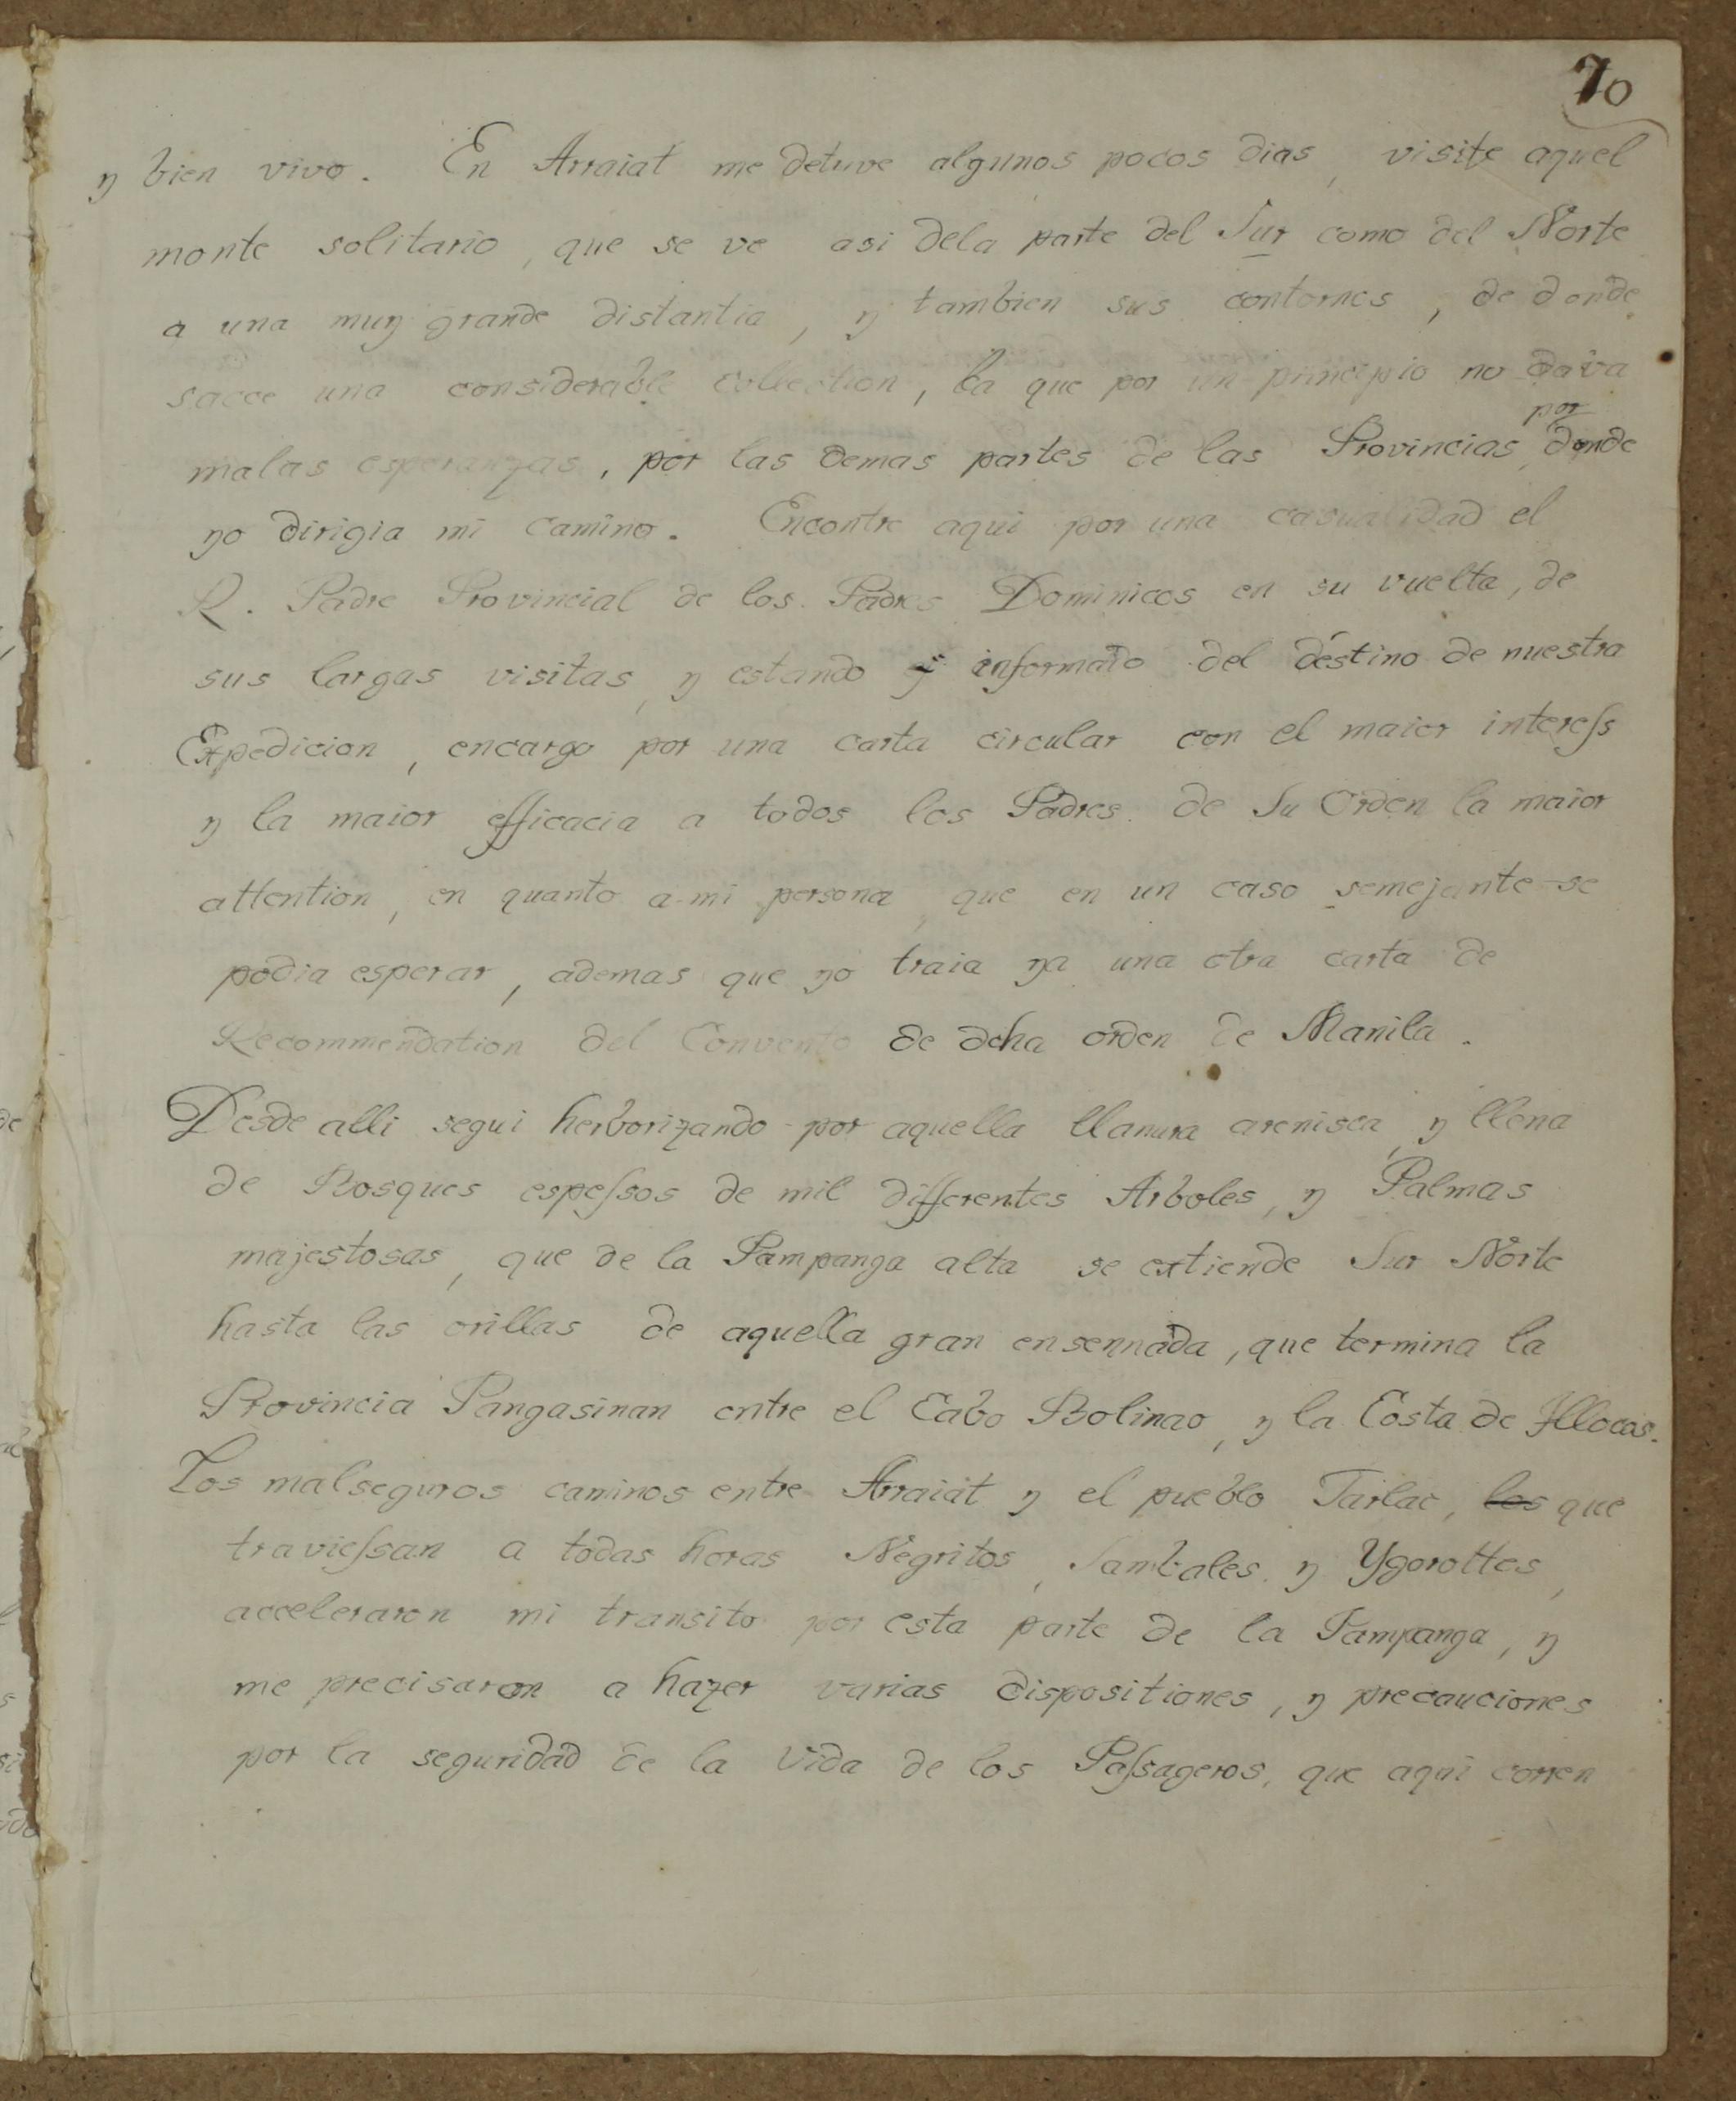 70
y bien vivo. En Arraiat me detuve algunos pocos dias, visite aquel
monte solitario, que se ve asi dela parte del Sur como del Norte
a una muy grande distantia, y tambien sus contornos, de donde
sacce una considerable collection, la que por un principio no dava
malas esperanzas, por las demas partes de las Provincias, por donde
yo dirigia mi camino. Encontre aqui por una casualidad el
R. Padre Provincial de los Padres Dominicos en su vuelta, de
sus largas visitas, y estando informado del destino de nuestra
Expedicion, encargo por una carta circular con el maior interess
y la maior efficacia a todos los Padres de Su Orden la maior
attention, en quanto a mi persona, que en un caso semejante se
podia esperar, ademas que yo traia ya una otra carta de
Recommendation del Convento de dcha orden de Manila.
Desde alli segui herborizando por aquella llanura arenisca, y llena
de Bosques espessos de mil differentes Arboles, y Palmas
majestosas, que de la Pampanga alta se extiende Sur Norte
hasta las orillas de aquella gran ensennada, que termina la
Provincia Pangasinan entre el Cabo Bolinao, y la Costa de Yllocos.
Los malseguros caminos entre Arraiat y el pueblo Tarlac, los que
traviessan a todas horas Negritos, Sambales y Ygorottes,
acceleraron mi transito por esta parte de la Pampanga, y
me precisaron a hazer varias dispositiones, y precauciones
por la seguridad de la Vida de los Passageros, que aqui corren